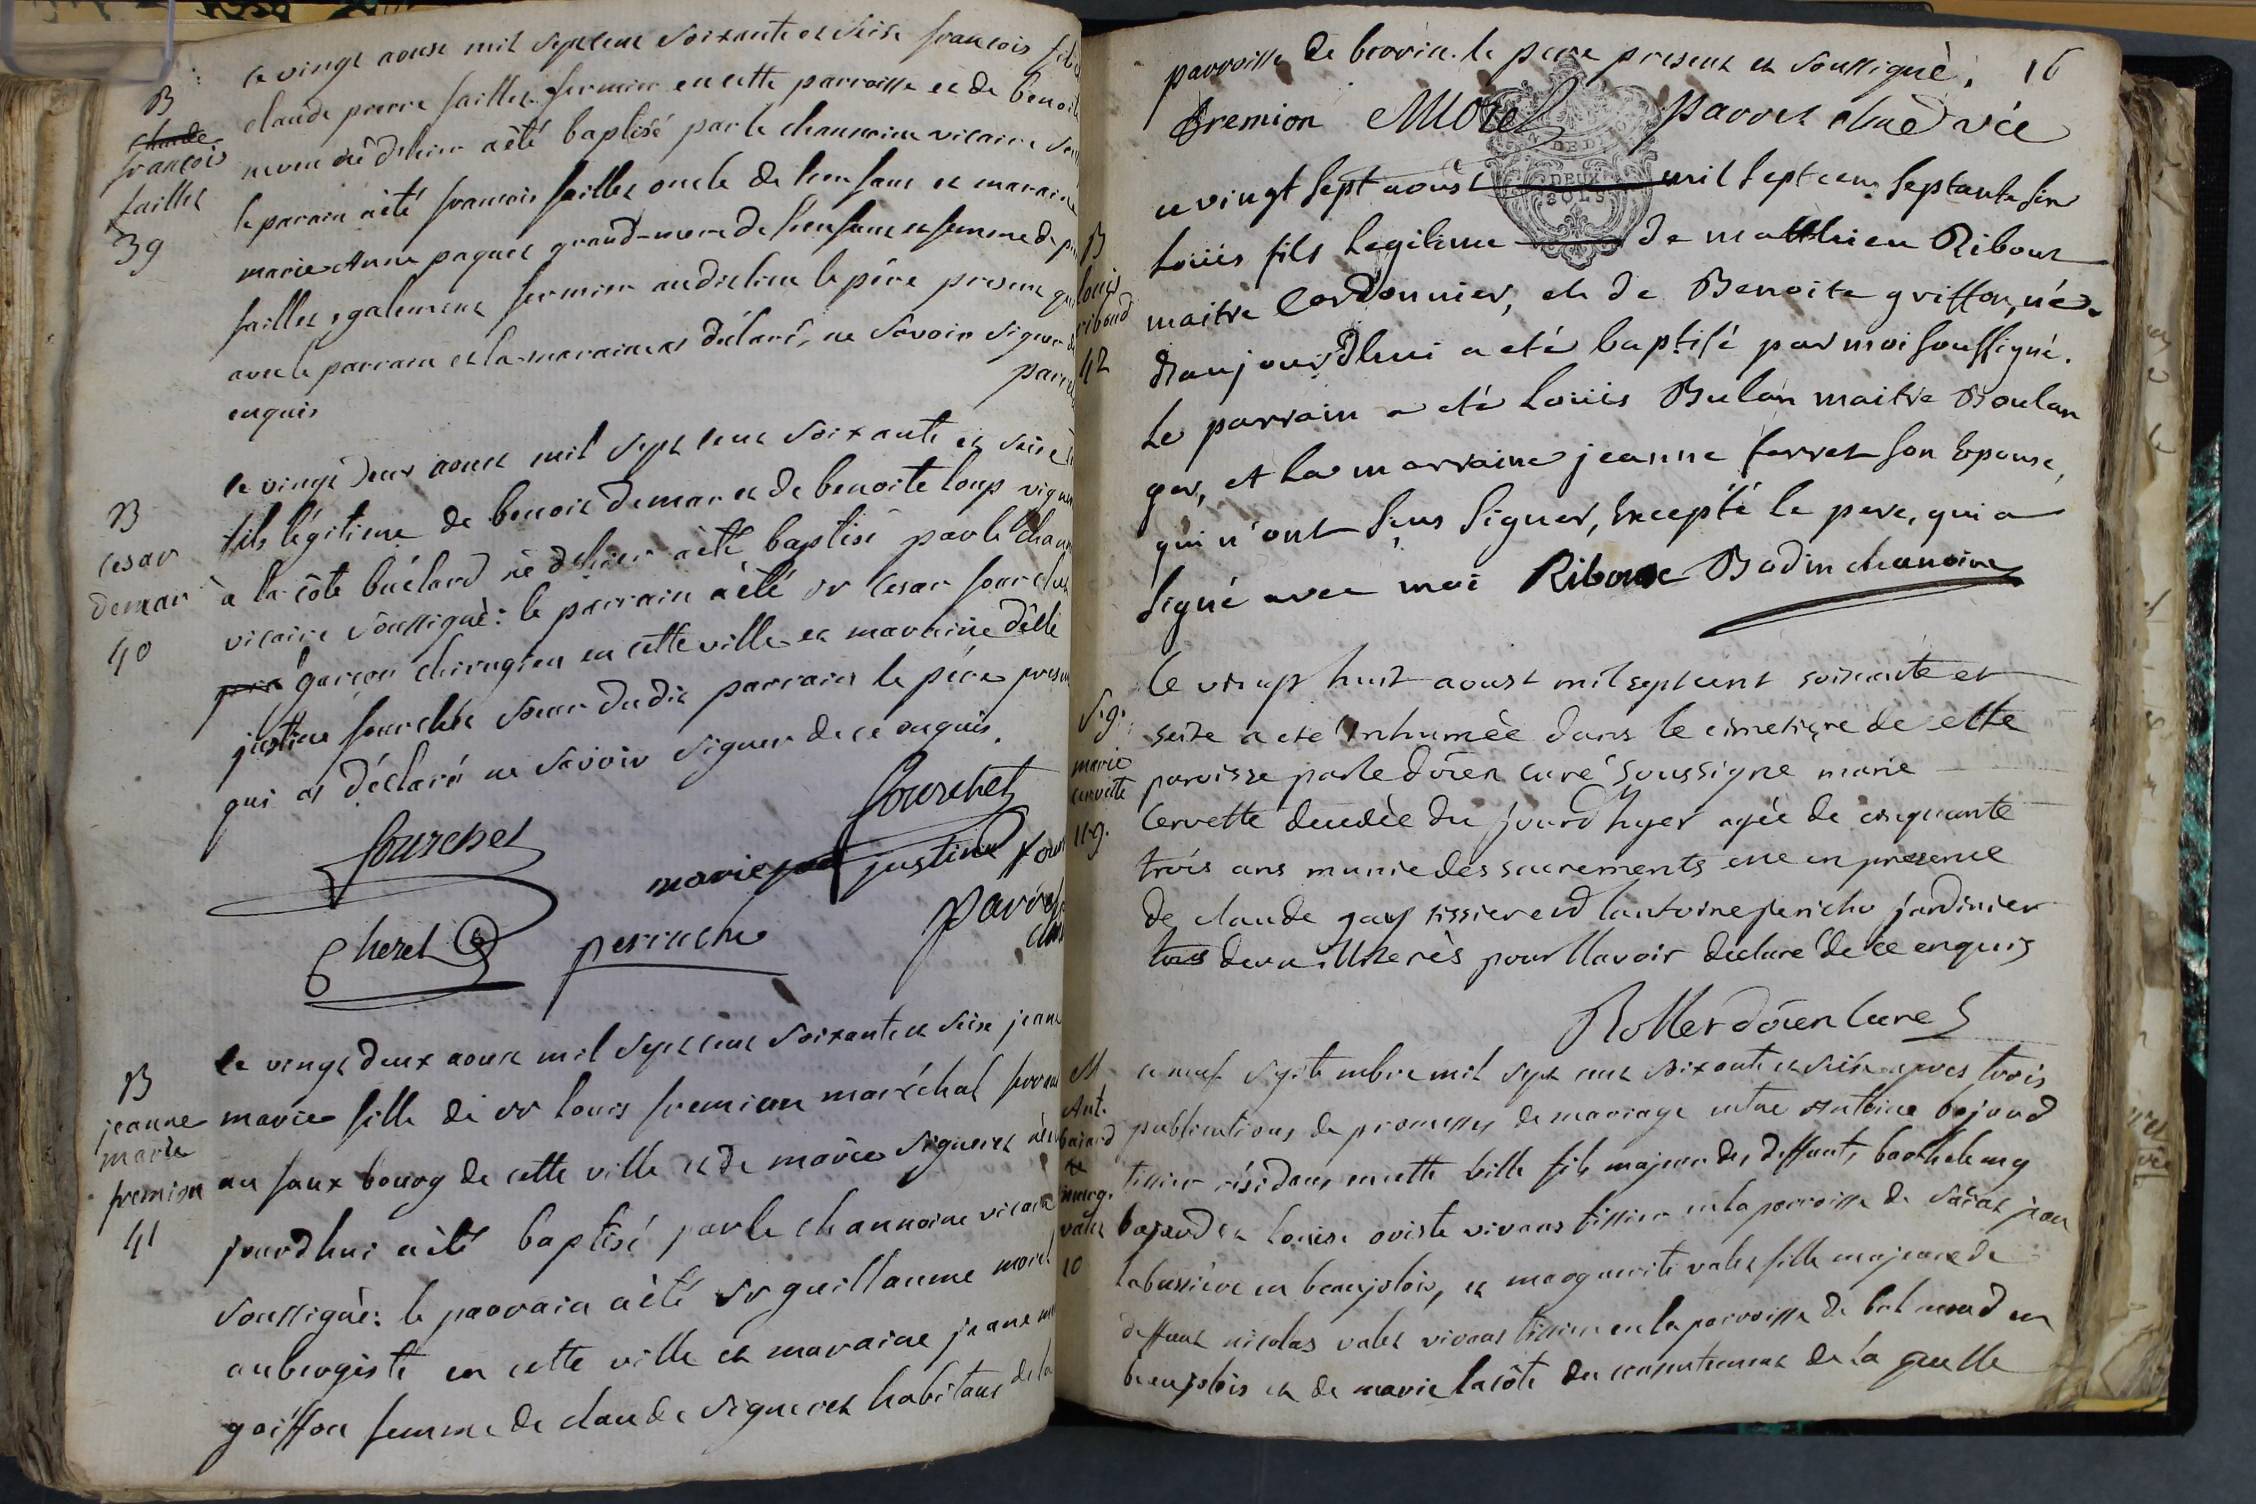 B
claude
francois
faillet
39
ce vingt aoust mil sept cent soixante et seise francois fils
claude pierre faillet fermier en cette parroisse et de benoite
né d'hier a été baptisé par le channoine vicaire
le parain a été francois faillet oncle de l'enfant et maraine
marie Anne paquet grand-mere de l'enfant et femme de
faillet, egalement fermier audit lieu le père present
avec le parrain et la maraine as déclaré, ne savoir signer
enquis
B
cesar
demar
40
le vingt deux aoust mil sept cent soixante et seise
fils légitime de benoit demar et de benoite loup
à la côte né d'hier a été baptisé par le
vicaire soussigné: le parrain a été sr cesar
garcon chirugien en cette ville et maraine delle
justine sourchet soeur dudit parrain le père
qui as déclaré ne savoir signer de ce enquis.
Sourchet
Sourchet
marie justine
Cherel perrache parret
B
jeanne
marie
fremion
41
le vingt deux aoust mil sept cent soixante et seise jeanne
marie fille de sr louis fremion maréchal ferrant
au faux bourg de cette ville et de marie signeret née
jourd'hui a été baptisé par le channoine vicaire
soussigné: le parrain a été sr guillaume morel
aubergiste en cette ville et maraine jeanne
goiffon femme de claude signeret habitans de la
16
parroisse de le pere present et soussigné.
fremion Morel parret vic
DEUX
SOLS
B
louis
riboud
42
ce vingt sept aoust mil sept cent septante six
Loüis fils legitime de matthieu Ribout
maitre Cordonnier, et de Benoite griffon, né
d'aujourd'hui a été baptisé par moi soussigné.
Le parrain a été Loüis Bulan maitre Boulan
ger, et la marraine jeanne ferret son Epouse,
qui n'ont sçus signer, Excepté le pere, qui a
signé avec moi Riboux Bodin chanoine
S.g.
marie
cervette
11.g.
le vingt huit aoust mil sept cent soixante et
seize a eté inhumée dans le cimetiere de cette
paroisse par le doïen curé soussigne marie
Cervette decedée du jourd'hyer agée de cinquante
trois ans munie des sacrements en présence
de claude gay tissier et d'antoine jericho jardinier
tous deux illiterés pour l'avoir declaré de ce enquis
Rollet doïen Curé
M
Ant.
bajard
et
marg.
valet
10
ce neuf septembre mil sept cent soixante et seise apres trois
publications de promesses de mariage entre Antoine bajard
tissier résidant en cette ville fils majeur des deffunts barthelemy
bajard et Louise oviste vivans tissier en la parroisse de saint jean
labussière en beaujolois, et marguerite valet fille majeure de
deffunt nicolas valet vivant tissier en la parroisse de belmond en
beaujolois et de marie lacôte du consentement de la quelle